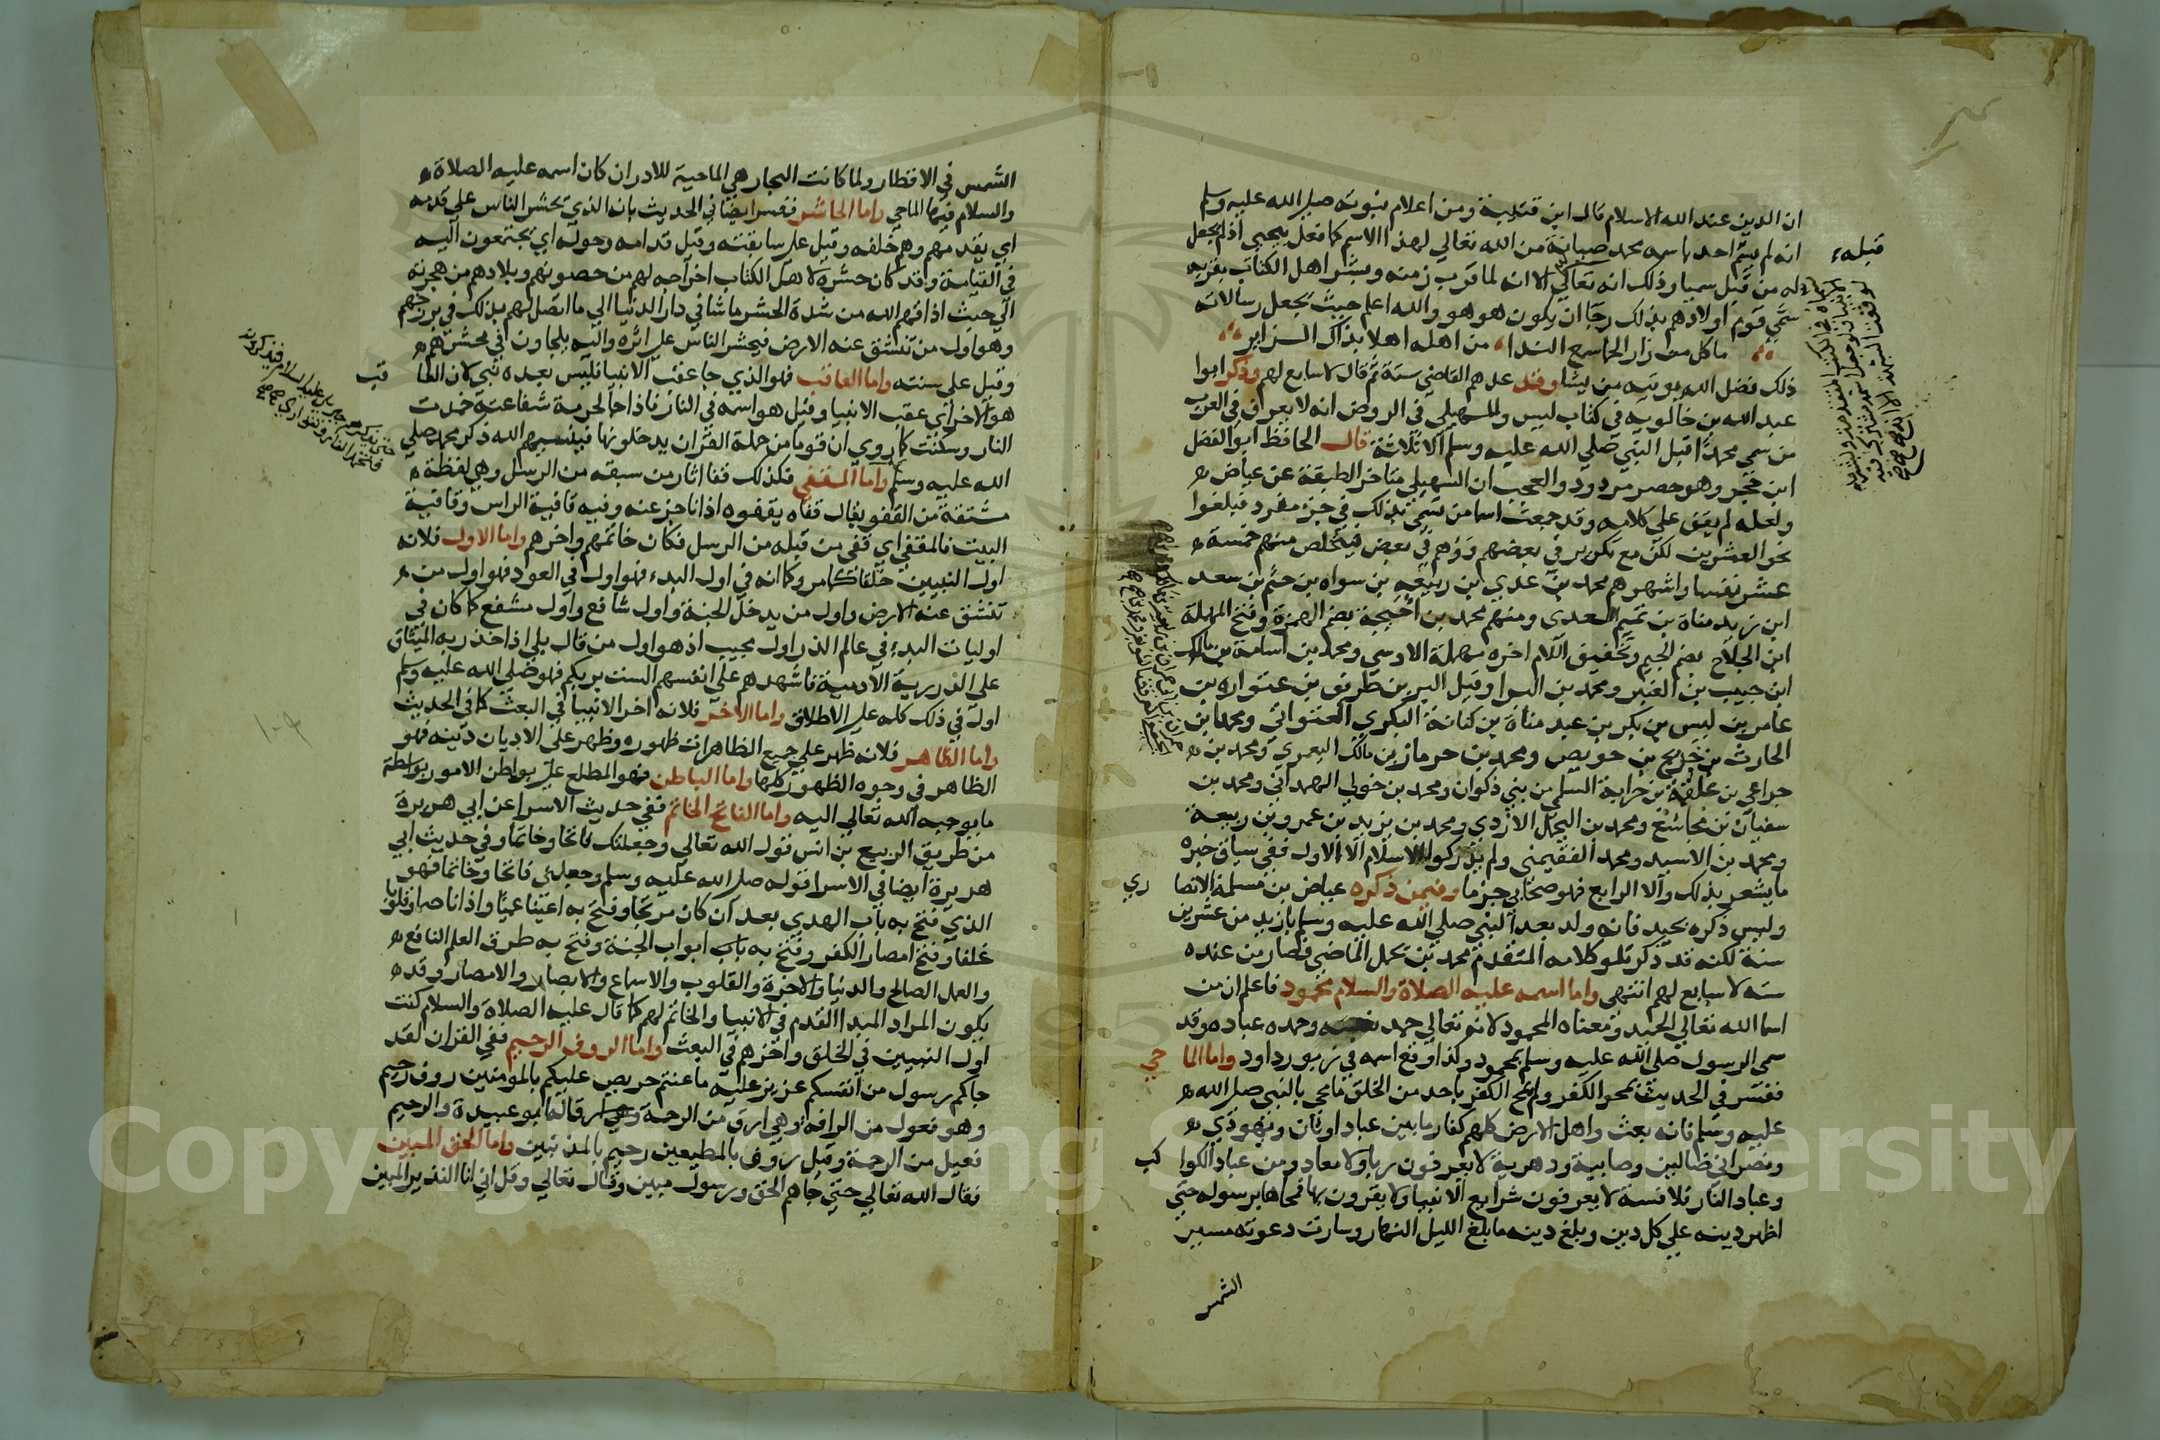 ان الدين عند الله الاسلام قال ابن قتيبة ومن اعلام نبوته صلى الله عليه وسلم
انه لم يسم احد باسمه محمد صيانة من الله تعالي لهذا الاسم كما فعل بيحيي اذ لم يجعل
قبله
له من قبل سميا وذلك انه تعالي الا انه لما قرب زمنه وبشر اهل الكتاب بقربه
سمي قوم اولادهم بذلك رجا ان يكون هو هو والله اعلم حيث يجعل رسالاته
ما كل من زار الحما سمع الندا من اهله اهلا بذاك الزاير
ذلك فضل الله يوتيه من يشا وقد عدهم القاضي ستة ثم قال لا سابع لهم وذكر ابوا
عبد الله بن خالويه في كتاب ليس والسهيلي في الروض انه لا يعرف في العرب
من سمي محمدا قبل النبي صلي الله عليه وسلم الا ثلاثة قال الحافظ ابوا الفضل
ابن حجر وهو حصر مردود والعجب ان السهيلي متاخر الطبقة عن عياض
ولعله لم يقف علي كلامه وقد جمعت اسما من تسمي بذلك في جزء مفرد فبلغوا
نحو العشرين لكن مع تكرير في بعضهم ووهم في بعض فيتخلص منهم خمسة
عشر نفسا واشهرهم محمد بن عدي ابن ربيعه بن سواه بن جشم بن سعد
ابن زيد مناة بن تميم السعدي ومنهم محمد بن احيحة بضم الهمزة وفتح المهملة
ابن الجلاح بضم الجيم وتخفيف اللام اخره مهملة الاوسي ومحمد بن اسامة بن مالك
ابن حبيب بن العنبر ومحمد بن البرا وقيل البر بن طريف بن عتواره بن
عامر بن ليس بن بكر بن عبد مناة بن كنانة البكري العتواتي ومحمد بن
الحارث بن خديج بن حويص ومحمد بن حرماز بن مالك اليعمري ومحمد بن
خزاعي بن علقمة بن خرابة السلمي من بني ذكوان ومحمد بن خولي الهمداني ومحمد بن
سفيان بن مجاشع ومحمد بن اليحمل الازدي ومحمد بن يزيد بن عمرو بن ربيعة
ومحمد بن الاسيد ومحمد الفقيمي ولم يدركوا الاسلام الا الاول ففي سياق خبره
ما يشعر بذلك والا الرابع فهو صحابي جزما وفيمن ذكره عياض بن مسلمة الانصا ري
وليس ذكره بجيد فانه ولد بعد النبي صلي الله عليه وسلم بازيد من عشرين
سنة لكنه قد ذكر تلو كلامه المتقدم محمد بن يحمل الماضي فصار من عنده
سته لا سابع لهم انتهي واما اسمه عليه الصلاة والسلام محمود فاعلم ان من
اسما الله تعالي الحميد ومعناه المحمود لانه تعالي حمد نفسه وحمده عباده وقد
سمي الرسول صلي الله عليه وسلم بمحمود وكذا وقع اسمه في زبور داود واما الما حي
ففسر في الحديث بمحو الكفر ولم يمح الكفر باحد من الخلق ما محي بالنبي صلي الله
عليه وسلم فانه بعث واهل الارض كلهم كفار ما بين عباد اوثان ويهودي
ونصراني ضالين وصابية ودهرية لا يعرفون ربا ولا معاد ومن عباد الكوا كب
وعباد النار وفلاسفة لا يعرفون شرايع الانبيا ولا يقرون بها فمحاها برسوله حتي
اظهر دينه علي كل دين وبلغ دينه ما بلغ الليل النهار وسارت دعوته مسير
الشمس
الشمس في الاقطار ولما كانت البحار هي الماحية للادران كان اسمه عليه الصلاة
والسلام فيها الماحي واما الحاشر ففسر ايضا في الحديث بانه الذي يحشر الناس علي قدمه
اي يقدمهم وهم خلفه وقيل علي سابقته وقيل قدامه وحوله اي يجتمعون اليه
في القيامة وقد كان حشره لاهل الكتاب اخراجه لهم من حصونهم وبلادهم من هجرته
الي حيث اذاقهم الله من شدة الحشر ما شا في دار الدنيا الي ما اتصل لهم بذلك في برزخهم
وهو اول من تنشق عنه الارض فيحشر الناس علي اثره واليه يلجاون في محشرهم
وقيل علي سنته واما العاقب فهو الذي جا عقب الانبيا فليس بعده نبي لان العا قب
هو الاخر اي عقب الانبيا وقيل هو اسمه في النار فاذا جا لحرمة شفاعته خمدت
النار وسكنت كما روي ان قوما من حملة القران يدخلونها فينسيهم الله ذكر محمد صلي
الله عليه وسلم واما المقفي فكذلك قفا اثار من سبقه من الرسل وهي لفظة
مشتقة من القفو يقال قفاه يقفوه اذا تاخر عنه وفيه قافية الراس وقافية
البيت فالمقفي اي قفي من قبله من الرسل فكان خاتمهم واخرهم واما الاول فلانه
اول النبيين خلقا كما مر وكما انه في اول البدء فهو اول في العود فهو اول من
تنشق عنه الارض واول من يدخل الجنة واول شافع واول مشفع كما كان في
اوليات البدء في عالم الذر اول مجيب اذ هو اول من قال بلي اذ اخذ ربه الميثاق
علي الذرية الآدمية فاشهدهم علي انفسهم الست بربكم فهو صلي الله عليه وسلم
اول في ذلك كله علي الاطلاق واما الاخر فلانه اخر الانبيا في البعث كما في الحديث
واما الظاهر فلانه ظهر علي جميع الظاهرات ظهوره وظهر علي الاديان دينه فهو
الظاهر في وجوه الظهور كلها واما الباطن فهو المطلع علي بواطن الامور بواسطة
ما يوحيه الله تعالي اليه واما الفاتح الخاتم ففي حديث الاسرا عن ابي هريرة
من طريق الربيع بن انس قول الله تعالي وجعلتك فاتحا وخاتما وفي حديث ابي
هريرة ايضا في الاسرا قوله صلي الله عليه وسلم وجعلني فاتحا وخاتما فهو
الذي فتح به باب الهدي بعد ان كان مرتجا وفتح به اعينا عميا واذانا صما وقلوبا
غلفا وفتح امصار الكفر وفتح به باب ابواب الجنة وفتح به طرق العلم النافع
والعمل الصالح والدنيا والاخرة والقلوب والاسماع والابصار والامصار وقد
يكون المراد المبدا المقدم في الانبيا والخاتم لهم كما قال عليه الصلاة والسلام كنت
اول النبيين في الخلق واخرهم في البعث واما الروف الرحيم ففي القران لقد
جاكم رسول من انفسكم عزيز عليه ما عنتم حريص عليكم بالمومنين روف رحيم
وهو فعول من الرافة وهي ارق من الرحمة قاله ابو عبيدة والرحيم
فعيل من الرحمة وقيل روف بالمطيعين رحيم بالمذنبين واما الحق المبين
فقال الله تعالي حتي جاهم الحق ورسول مبين وقال تعالي وقل اني انا النذير المبين
Copy King S ersity